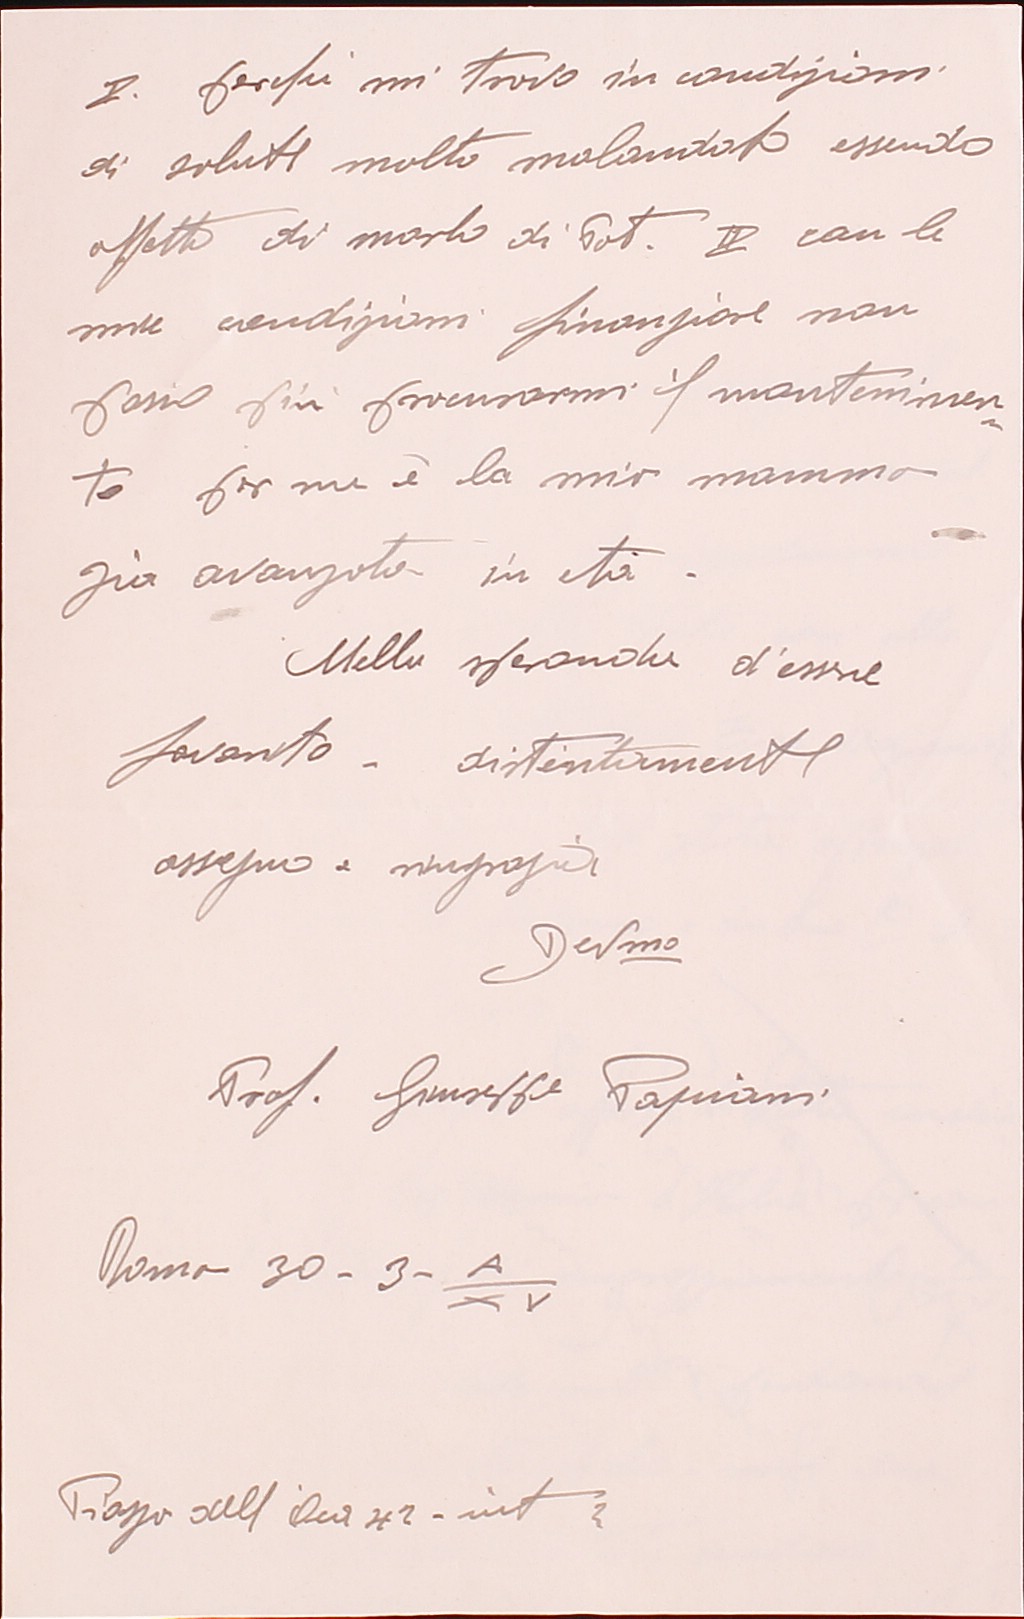 V. perchè mi trovo in condizioni
di salute molto malandato essendo
affetto di morbo di Pot. IV con le
mie condizioni finanziare non
posso più procurarmi il mantenimen=
to per me è la mia mamma
già avanzata in età -
Nella speranza d'essere
favorito - distintamente
ossequio e ringrazio
Devmo
Prof. Giuseppe Papiani
Roma 30 - 3 - A XV
Piazza dell' 42 - int 2